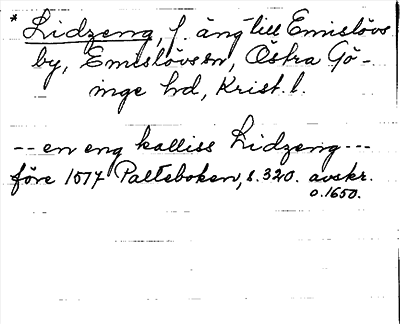 * Lidzeng, f. äng till Emislövs
by, Emislövs sn, Östra Gö-
inge hd, Krist. l.
-- en eng kalliss Lidzeng ---
före 1577 Palteboken, s. 320. avskr.
o. 1650.